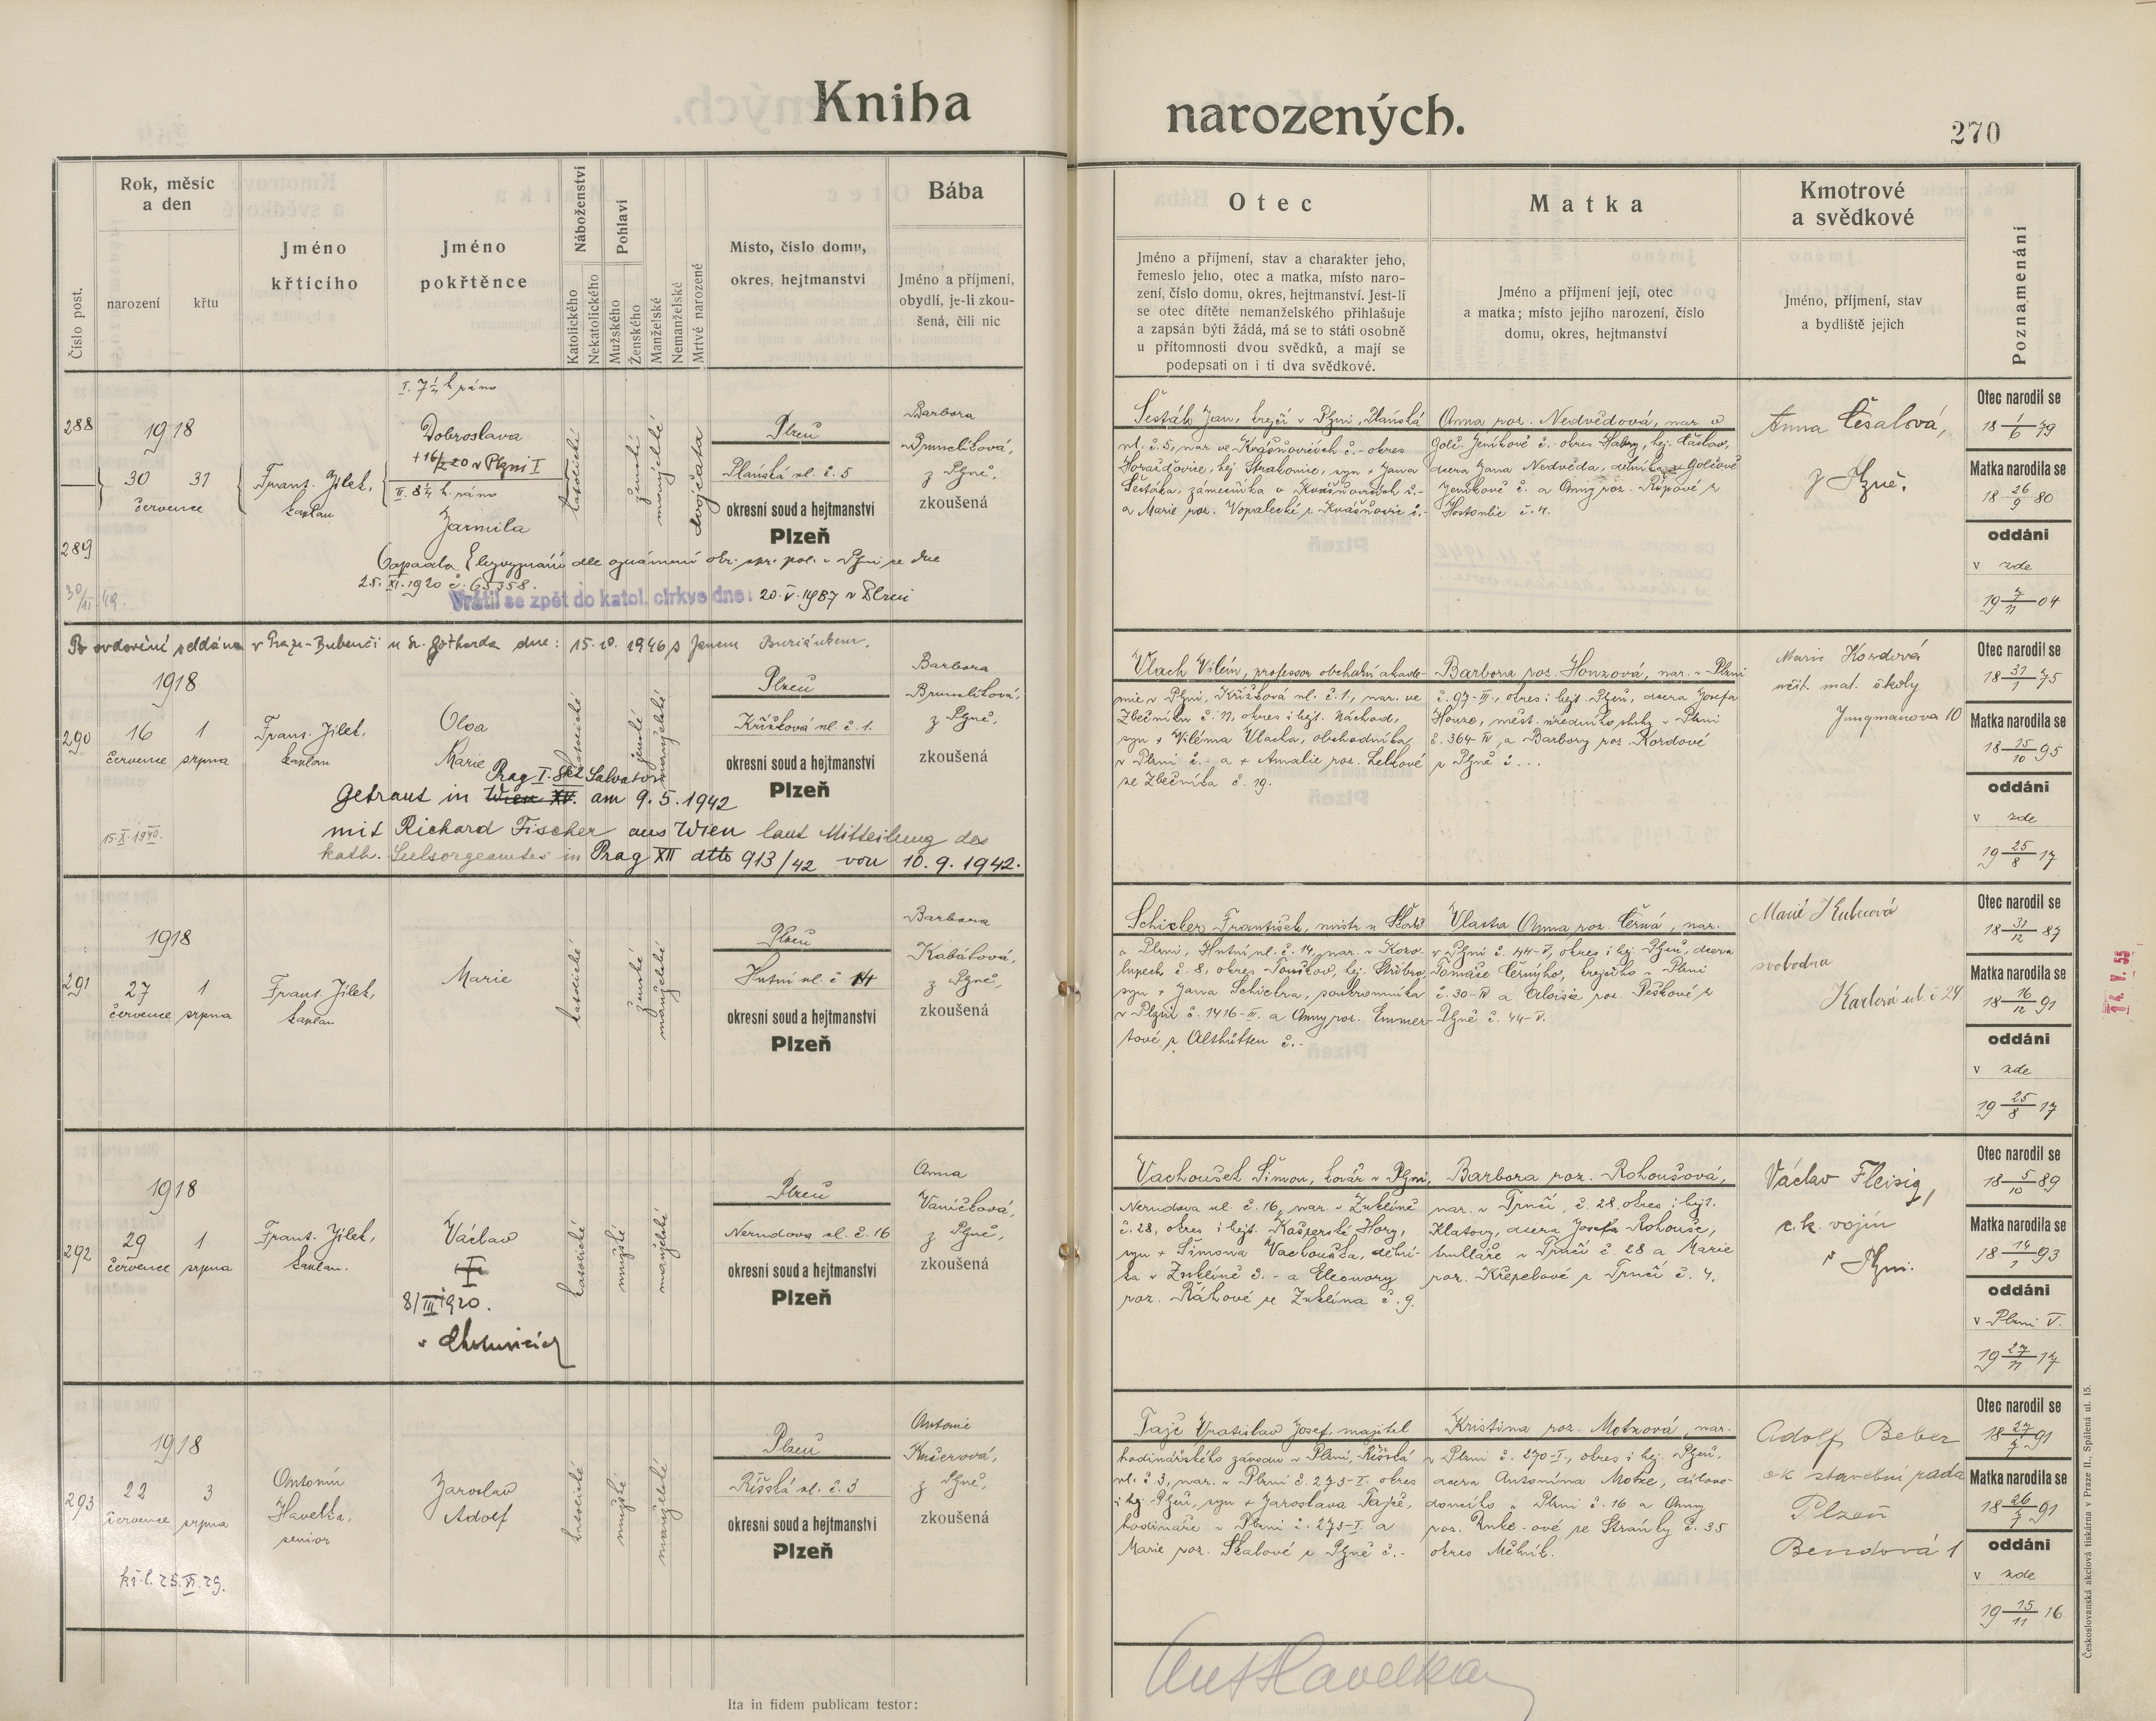 Kniha narozených.
270
Číslo post.
Rok, měsíc
a den
narození
křtu
Jméno
křtícího
Jméno
pokřtěnce
Náboženství
Katolického
Nekatolického
Pohlaví
Mužského
Ženského
Manželské
Nemanželské
Mrtvě narozené
Místo, číslo domu,
okres, hejtmanství
Bába
Jméno a příjmení,
obydlí, je-li zkou-
šená, čili nic
Otec
Jméno a příjmení, stav a charakter jeho,
řemeslo jeho, otec a matka, místo naro-
zení, číslo domu, okres, hejtmanství. Jest-li
se otec dítěte nemanželského přihlašuje
a zapsán býti žádá, má se to státi osobně
u přítomnosti dvou svědků, a mají se
podepsati on i ti dva svědkové.
Matka
Jméno a příjmení její, otec
a matka; místo jejího narození, číslo
domu, okres, hejtmanství
Kmotrové
a svědkové
Jméno, příjmení, stav
a bydliště jejich
Poznamenání
288
289
1918
30 31
července
Frant. Jílek,
kaplan
I. 7¼ h. ráno
Dobroslava
v Plzni I
II. 8¼ h. ráno
Jarmila
katolické
ženské
manželské
dvojčata
Plzeň
Plaňská ul. č. 5
okresní soud a hejtmanství
Plzeň
Barbora
Brumlíková,
z Plzně,
zkoušená
25. XI. 1920 č. 65358.
Vrátil se zpět do katol. církve dne: 20. V. 1987 v Plzni
Šesták Jan, krejčí v Plzni, Plaňská
ul. č. 5, nar. ve Kvášňovicích č. - okres
Horažďovice, hej. Strakonice, syn + Jana
Šestáka, zámečníka v Kvášňovicích č. -
a Marie roz. Vopalecké z Kvášňovic č. -
Anna roz. Nedvědová, nar. v
Golč. Jeníkově č. - okres Habry, hej. Čáslav,
dcera Jana Nedvěda, dělníka v Golčově
Jeníkově č. a Anny roz. Řípové z
Hostovlic č. 4.
Anna Česalová,
z Plzně.
Otec narodil se
18 1/6 79
Matka narodila se
18 26/9 80
oddáni
v zde
19 7/11 04
Po ovdovění oddána v Praze-Bubenči u sv. Gotharda dne: 15. 10. 1946 s Janem Buriánkem.
290
1918
16 1
července srpna
15. X. 1940.
Frant. Jílek,
kaplan
Olga
Marie
katolické
ženské
manželské
Plzeň
Křížkova ul. č. 1.
okresní soud a hejtmanství
Plzeň
Barbora
Brumlíková,
z Plzně,
zkoušená
Prag I. Skt. Salvator
Getraut in Wien XV. am 9. 5. 1942
mit Richard Fischer aus Wien laut Mitteilung des
kath. Seelsorgeamtes in Prag XII dtto 913/42 von 10. 9. 1942.
Vlach Vilém, professor obchodní akade-
mie v Plzni, Křížkova ul. č. 1, nar. ve
Zbečníku č. 11, okres i hejt. Náchod,
syn + Viléma Vlacha, obchodníka
v Plzni č. - a + Amalie roz. Lelkové
ze Zbečníka č. 19.
Barbora roz. Honzová, nar. v Plzni
č. 97-III, okres i hejt. Plzeň, dcera Josefa
Honze, měst. úředního sluhy v Plzni
č. 364-IV, a Barbory roz. Kordové
z Plzně č. ...
Marie Kordová
učit. mat. školy
Jungmanova 10
Otec narodil se
18 31/1 75
Matka narodila se
18 15/10 95
oddáni
v zde
19 25/8 17
291
1918
27 1
července srpna
Frant. Jílek,
kaplan
Marie
katolické
ženské
manželské
Plzeň
Hutní ul. č. 14
okresní soud a hejtmanství
Plzeň
Barbora
Kabátová,
z Plzně,
zkoušená
Schicker František, mistr u Škodů
v Plzni, Hutní ul. č. 14, nar. v Kozo-
lupech č. 8, okres Touškov, hej. Stříbro,
syn + Jana Schickra, soukromníka
v Plzni č. 1416-III. a Anny roz. Emmer-
tové z Althütten č. -
Vlasta Anna roz. Černá, nar.
v Plzni č. 44-V, okres i hej. Plzeň, dcera
Tomáše Černýho, krejčího v Plzni
č. 30-IV a Aloisie roz. Peškové z
Plzně č. 44-V.
Marie Kubcová
svobodna
Karlová ul. č 24.
Otec narodil se
18 31/12 87
Matka narodila se
18 16/12 91
oddáni
v zde
19 25/8 17
V. 55
292
1918
29 1
července srpna
Frant. Jílek,
kaplan.
Václav
†
8/III 1920.
katolické
mužské
manželské
Plzeň
Nerudova ul. č. 16
okresní soud a hejtmanství
Plzeň
Anna
Vaníčková,
z Plzně,
zkoušená
Vachoušek Šimon, kovář v Plzni,
Nerudova ul. č. 16, nar. v Zuklíně
č. 28, okres i hejt. Kašperské Hory,
syn + Šimona Vachouška, dělní-
ka v Zuklíně č. - a Eleonory
roz. Ráhové ze Zuklína č. 9.
Barbora roz. Rohoušová,
nar. v Trnčí, č. 28, okres i hejt.
Klatovy, dcera Josefa Rohouše,
truhláře v Trnčí č. 28 a Marie
roz. Křepelové z Trnčí č. 4.
Václav Fleisig,
c. k. vojín
v Plzni.
Otec narodil se
18 5/10 89
Matka narodila se
18 14/1 93
oddáni
v Plzni V.
19 27/11 17
293
1918
22 3
července srpna
kř. l. 25. VI. 29.
Antonín
Havelka,
senior
Jaroslav
Adolf
katolické
mužské
manželské
Plzeň
Říšská ul. č. 3
okresní soud a hejtmanství
Plzeň
Antonie
Kučerová,
z Plzně,
zkoušená
Tajč Vratislav Josef, majitel
hodinářského závodu v Plzni, Říšská
ul. č. 3, nar. v Plzni č. 275-I. okres
i hej. Plzeň, syn + Jaroslava Tajče,
hodináře v Plzni č. 275-I. a
Marie roz. Skalové z Plzně č. -
Kristina roz. Motzová, nar.
v Plzni č. 270-I., okres i hej. Plzeň,
dcera Antonína Motze, dílovo-
doucího v Plzni č. 16 a Anny
okres Mělník.
Adolf Beber
ck stavební rada
Plzeň
Bendova 1
Otec narodil se
18 27/7 91
Matka narodila se
18 26/7 91
oddáni
v zde
19 15/11 16
Ant Havelka
Ita in fidem publicam testor:
Českoslovanská akciová tiskárna v Praze II., Spálená ul. 15.